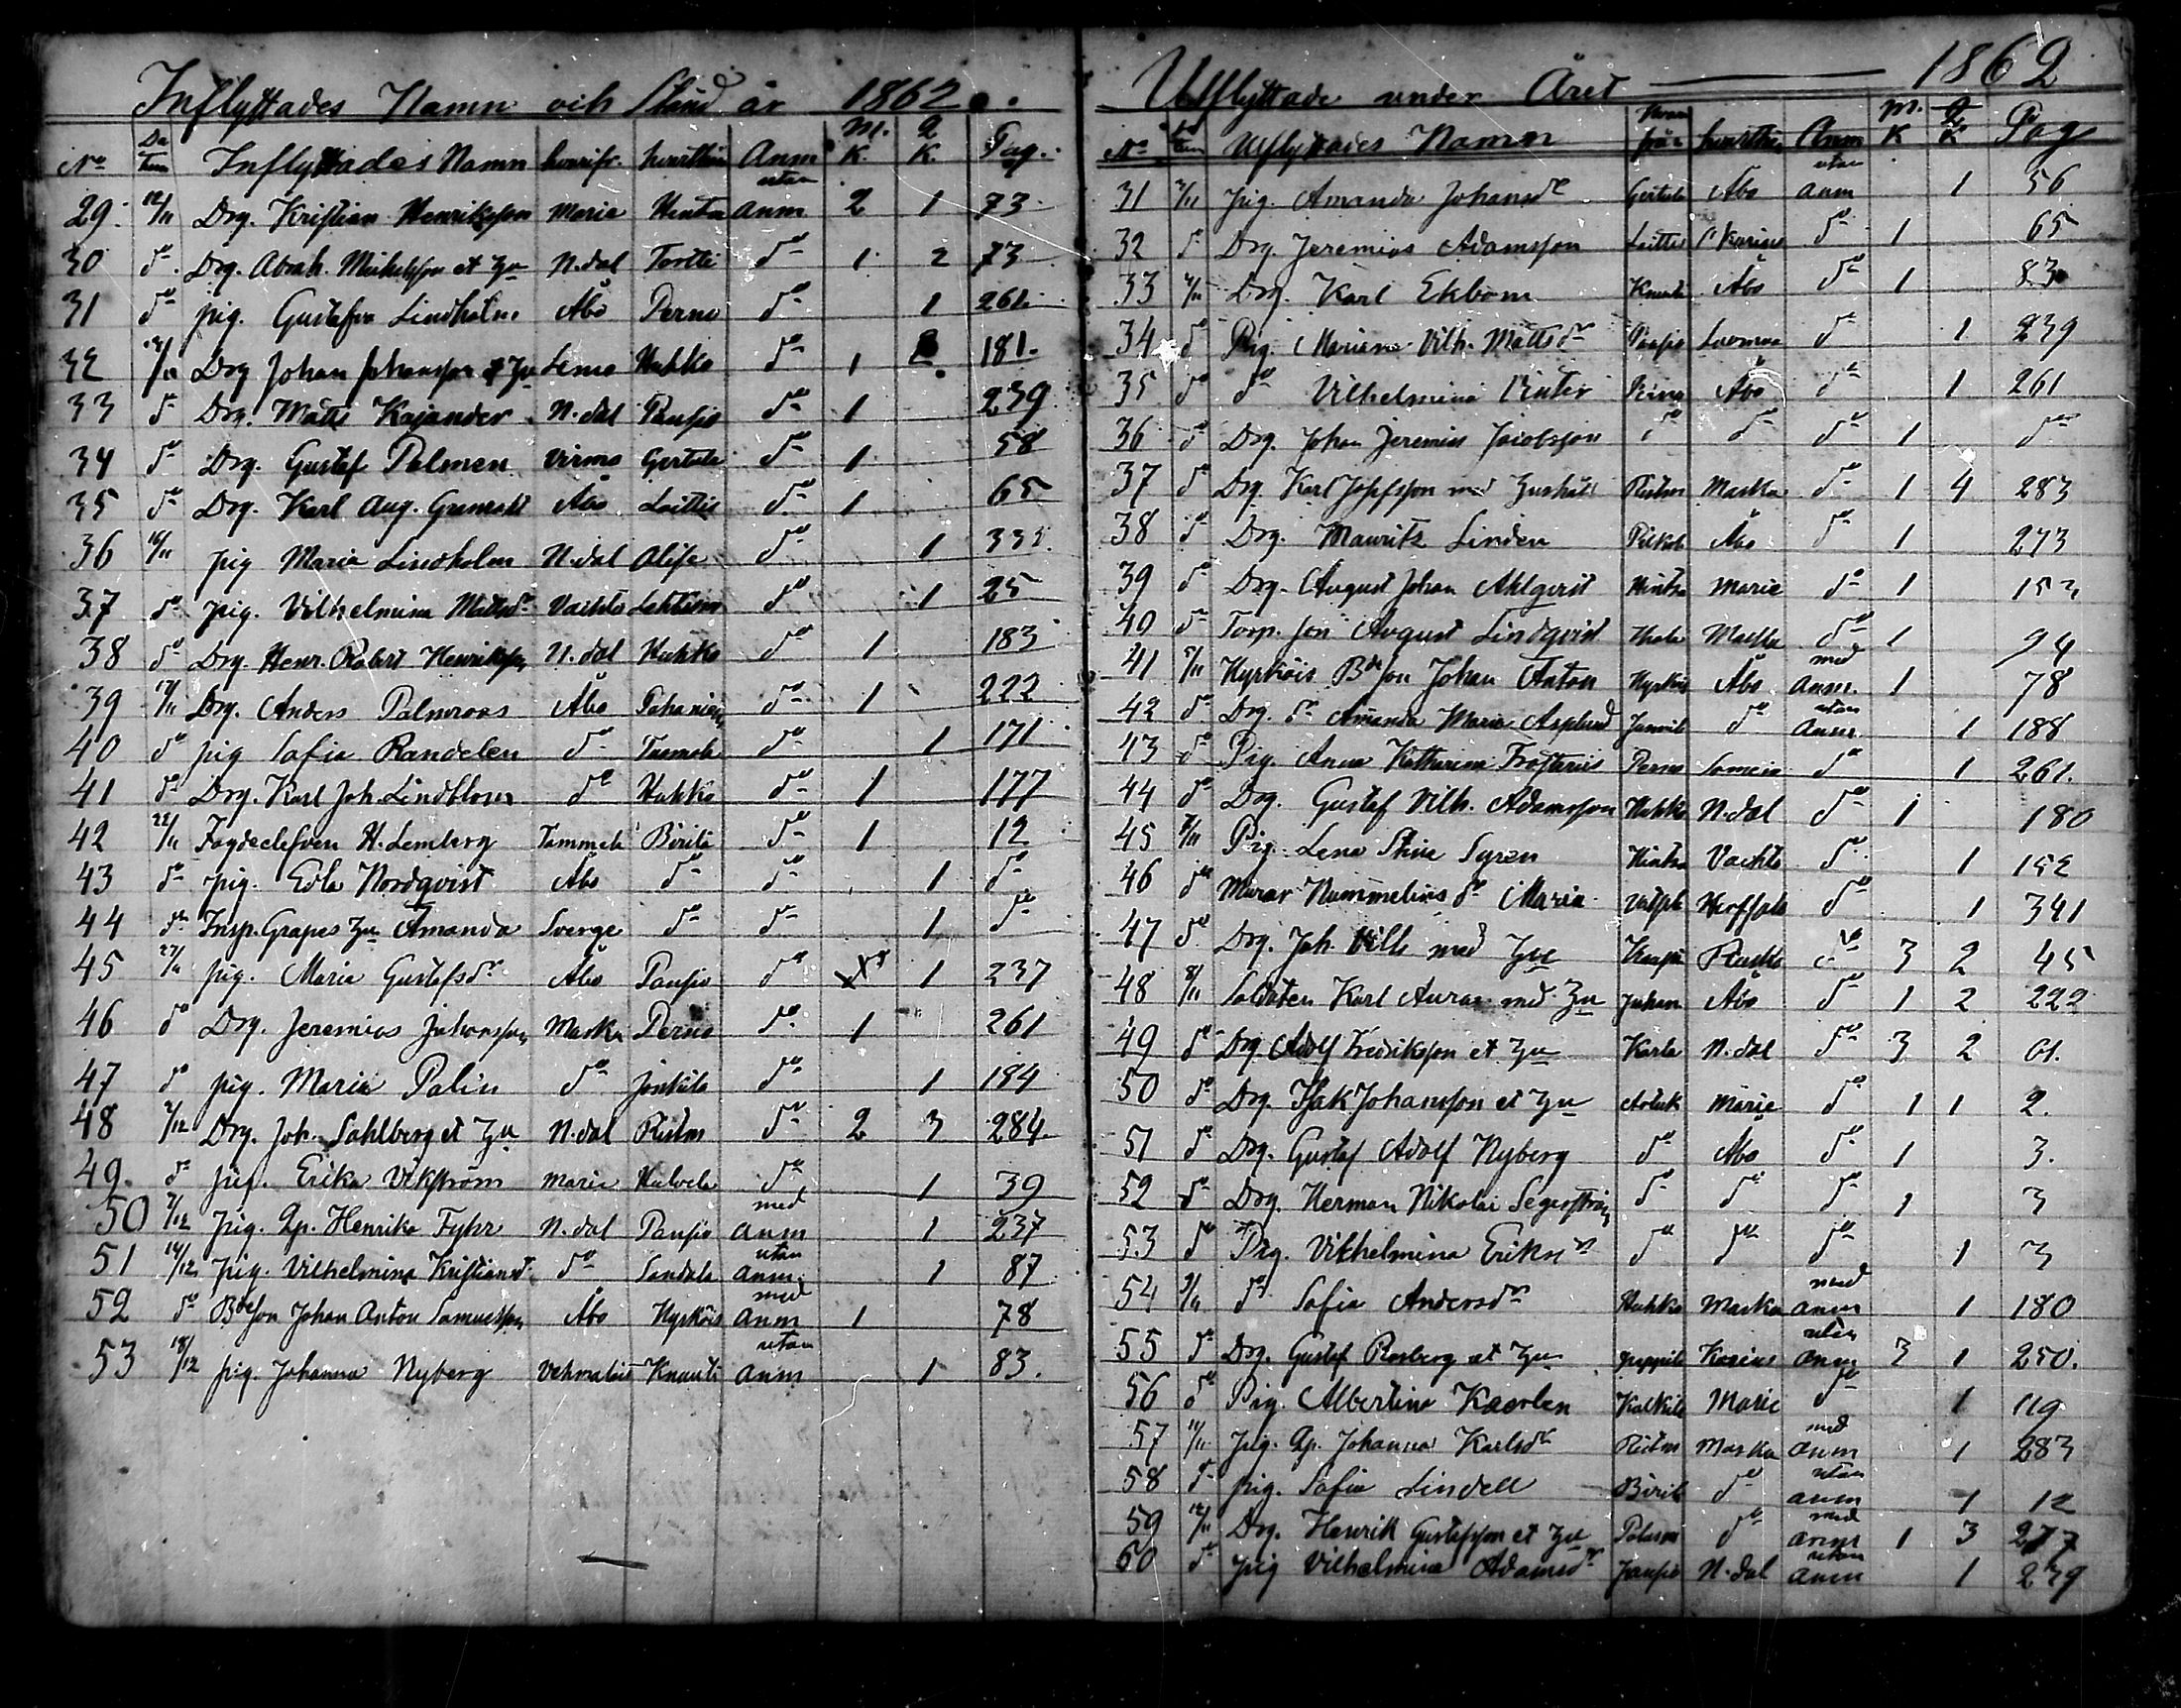 Inflyttades Namn och Stånd år 1862.
No Datum Inflyttades Namn hvarifr. hvarthän Anm M.K. Q.K. Pag.
29. 12/11 Drg. Kristian Henriksson Marie Hintsa utan Anm 2 1 73
30 do Drg. Abrah. Mickelsson et Zu N.dal Tortti do 1 2 73
31 do pig. Gustafva Lindholm Åbo Perno do 1 261
32 Drg Johan Johansson et Zu Lemo Huhko do 1 181.
33 do Drg. Matts Kajander N.dal Paupis do 1 239
34 do Drg. Gustaf Palmen Virmo Gertula do 1 58
35 do Drg. Karl Aug. Åbo Laittis do 1 65
36 16/11 pig Maria Lindholm N.dal do 1
37 do pig. Vilhelmina Mattsdr Vachto do 1 25
38 do Drg. Henr. Robert Henriksson N.dal Huhko do 1 183
39 17/11 Drg. Anders Palmroos Åbo do 1 222
40 do pig Sofia Randelen do do 1 171
41 do Drg. Karl Joh. Lindblom do Huhko do 1 177
42 22/11 H. Lemberg Tammela Birila do 1 12
43 do pig. Edla Nordqvist Åbo do do 1 do
44 do Insp. Grapes Zu Amanda Sverge do do 1 do
45 27/11 pig. Maria Gustafsdr Åbo Paupis do 1 237
46 do Drg. Jeremias Johansson Masku Perno do 1 261
47 do pig. Maria Palin do Junkila do 1 184
48 Drg. Joh. Sahlberg et Zu N.dal do 2 3 284
49. do pig. Erika Vikström Marie do 1 39
50 pig. Qp. Henrika Fyhr N.dal Paupis med anm 1 237
51 14/12 pig. Vilhelmina Kristiansd. do Sandala utan anm. 1 87
52 do Bdeson Johan Anton Samuelsson Åbo Hyrköis med anm 1 78
53 18/12 pig. Johanna Nyberg Vehmalais Knuuti utan anm 1 83.
Utflyttade under Året 1862
No Datum Utflyttades Namn hvarifrån hvarthän Anm M.K. Q.K. Pag
31 pig. Amanda Johansdr Gertula Åbo utan anm 1 56
32 do Drg. Jeremias Adamsson Laittis S:t Karins do 1 65
33 Drg. Karl Ekbom Knuuti Åbo do 1 83
34 do Pig. Mariana Vilh. Mattsdr Paupis do 1 239
35 do do Vilhelmina Perno Åbo do 1 261
36 do Drg. Johan Jeremias Jacobsson do do do 1 do
37 do Drg. Karl Josefsson med hushåll Masku do 1 4 283
38 do Drg. Mauritz Linden Åbo do 1 273
39 do Drg. August Johan Ahlqvist Hintsa Marie do 1 153
40 do Torp. son August Lindqvist Masku do 1 94
41 Hyrköis Bdeson Johan Anton Hyrköis Åbo med anm. 1 78
42 do Drg. dr Amanda Maria Asplund do utan Anm. 1 188
43 do Pig. Anna Katharina Perno do 1 261.
44 do Drg. Gustaf Vilh. Adamsson Huhko N.dal do 1 180
45 Pig. Lena Stina Syren Hintsa Vachto do 1 152
46 do Murar Nummelins dr Maria do 1 341
47 do Drg. Joh. Vill. med Zu do 3 2 45
48 8/11 Soldaten Karl Auras med Zu Åbo do 1 2 222
49 do Drg Adolf Fredriksson et Zu Karla N.dal do 3 2
50 do Drg. Isak Johansson et Zu Marie do 1 1 2.
51 do Drg. Gustaf Adolf Nyberg do Åbo do 1 3.
52 do Drg. Herman Nikolai Segerström do do do 1 3
53 do Pig. Vilhelmina Eriksdr do do do 1 3
54 9/11 do Sofia Andersdr Huhko Masku med anm 1 180
55 do Drg. Gustaf Rosberg et Zu Karins utan anm 3 1 250.
56 do Pig. Albertina Kaerlen Kalkila Marie do 1 119
57 11/11 pig. Qp. Johanna Karlsdr Masku med anm 1 283
58 do pig. Sofia Lindell Birila do utan anm 1 12
59 12/11 Drg. Henrik Gustafsson et Zu do med anm 1 3 277
60 do pig Vilhelmina Adamsdr Paupis N.dal utan anm 1 239